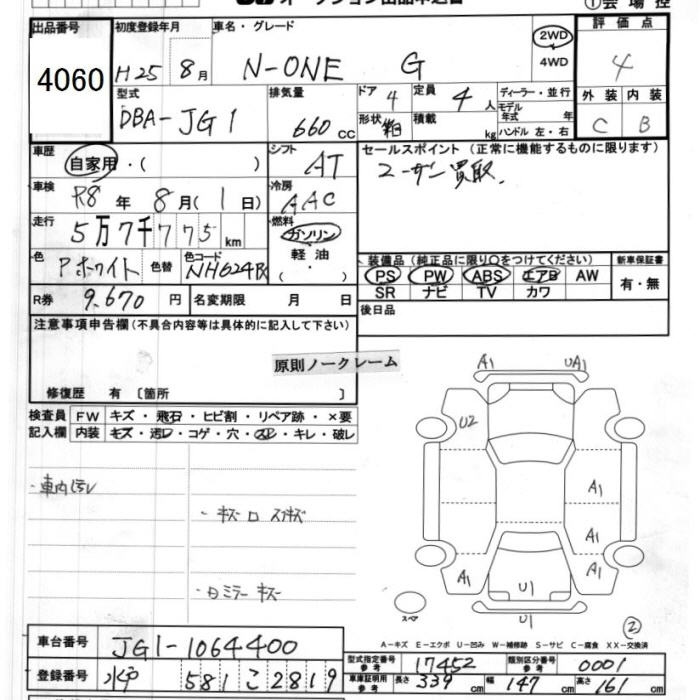 ①会場控
出品番号 4060
初度登録年月 H25 8月
車名・グレード N-ONE G
2WD
4WD
評価点 4
型式 DBA-JG1
排気量 660cc
ドア 4
定員 4人
ディーラー・並行
モデル年式 年
形状
積載 kg
ハンドル 左・右
外装 内装
C B
車歴 自家用・( )
シフト AT
セールスポイント (正常に機能するものに限ります)
ユーザー買取.
車検 R8年 8月(1日)
冷房 AAC
走行 5万7千775km
燃料 ガソリン
軽油
( ・ )
色 Pホワイト
色替
色コード NH624P
装備品 (純正品に限り○をつけてください)
新車保証書
PS PW ABS エアB AW
有・無
SR ナビ TV カワ
R券 9,670円
名変期限 月 日
後日品
注意事項申告欄(不具合内容等は具体的に記入して下さい)
原則ノークレーム
修復歴 有 〔箇所 〕
検査員 FW キズ・飛石・ヒビ割・リペア跡・×要
記入欄 内装 キズ・汚レ・コゲ・穴・スレ・キレ・破レ
A1 UA1
U2
A1
A1
A1 A1
U1
U1
・車内汚レ
・キズ ロ スリキズ
・ロミラー キズ
スペア
②
A-キズ E-エクボ U-凹み W-補修跡 S-サビ C-腐食 XX-交換済
車台番号 JG1-1064400
型式指定番号 参考 17452
類別区分番号 参考 0001
登録番号 水戸 581 こ 2819
車庫証明用 参考 長さ 339cm 幅 147cm 高さ 161cm